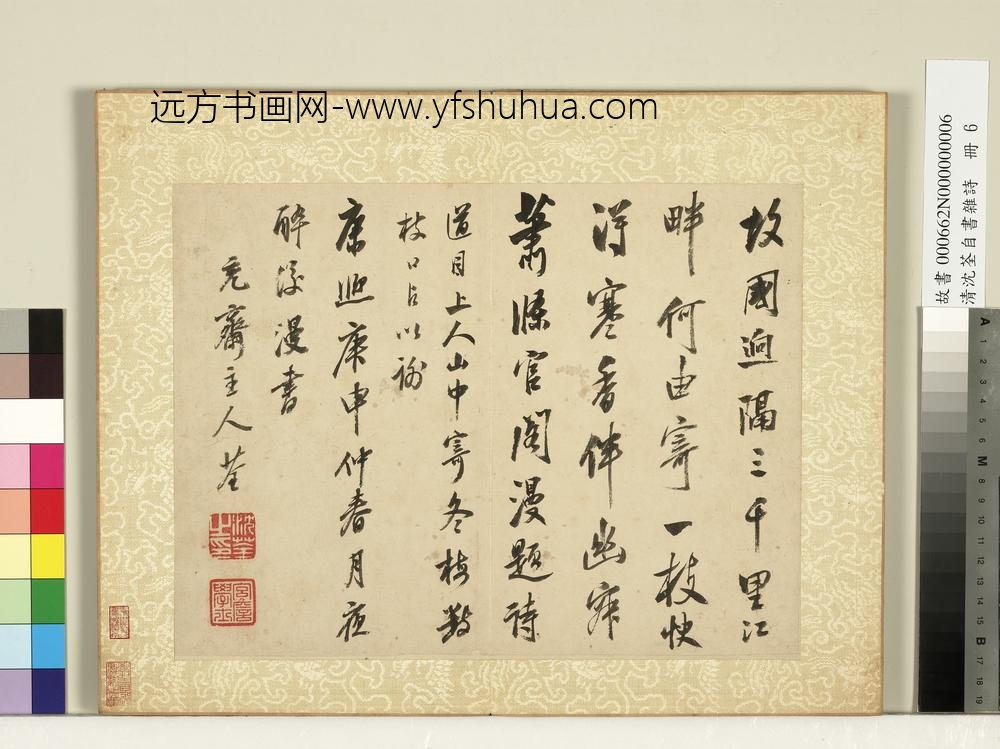 远方书画网-www.yfshuhua.com
故國迥隔三千里江
畔何由寄一枝快
得寒香伴幽寂
蕭條官閣漫題詩
道目上人山中寄冬梅數
枝口占以謝
康熙庚申仲春月夜
醉後漫書
充齋主人荃
沈荃之印
宮詹學士
故書000662N000000006
清沈荃自書雜詩 冊 6
A 1 2 3 4 5 6 M 8 9 10 11 12 13 14 15 B 17 18 19